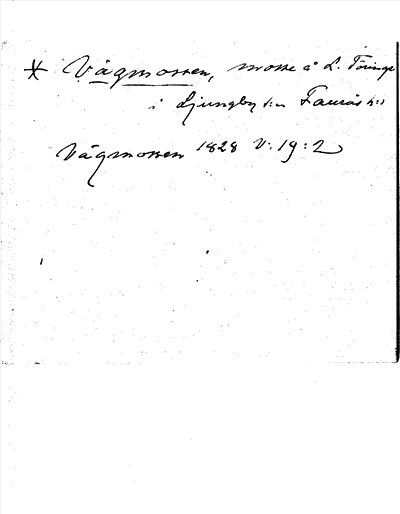 * Vägmossen, mosse å L. Töringe
i Ljungby sn Faurås hd
Vägmossen 1828 V:19:2